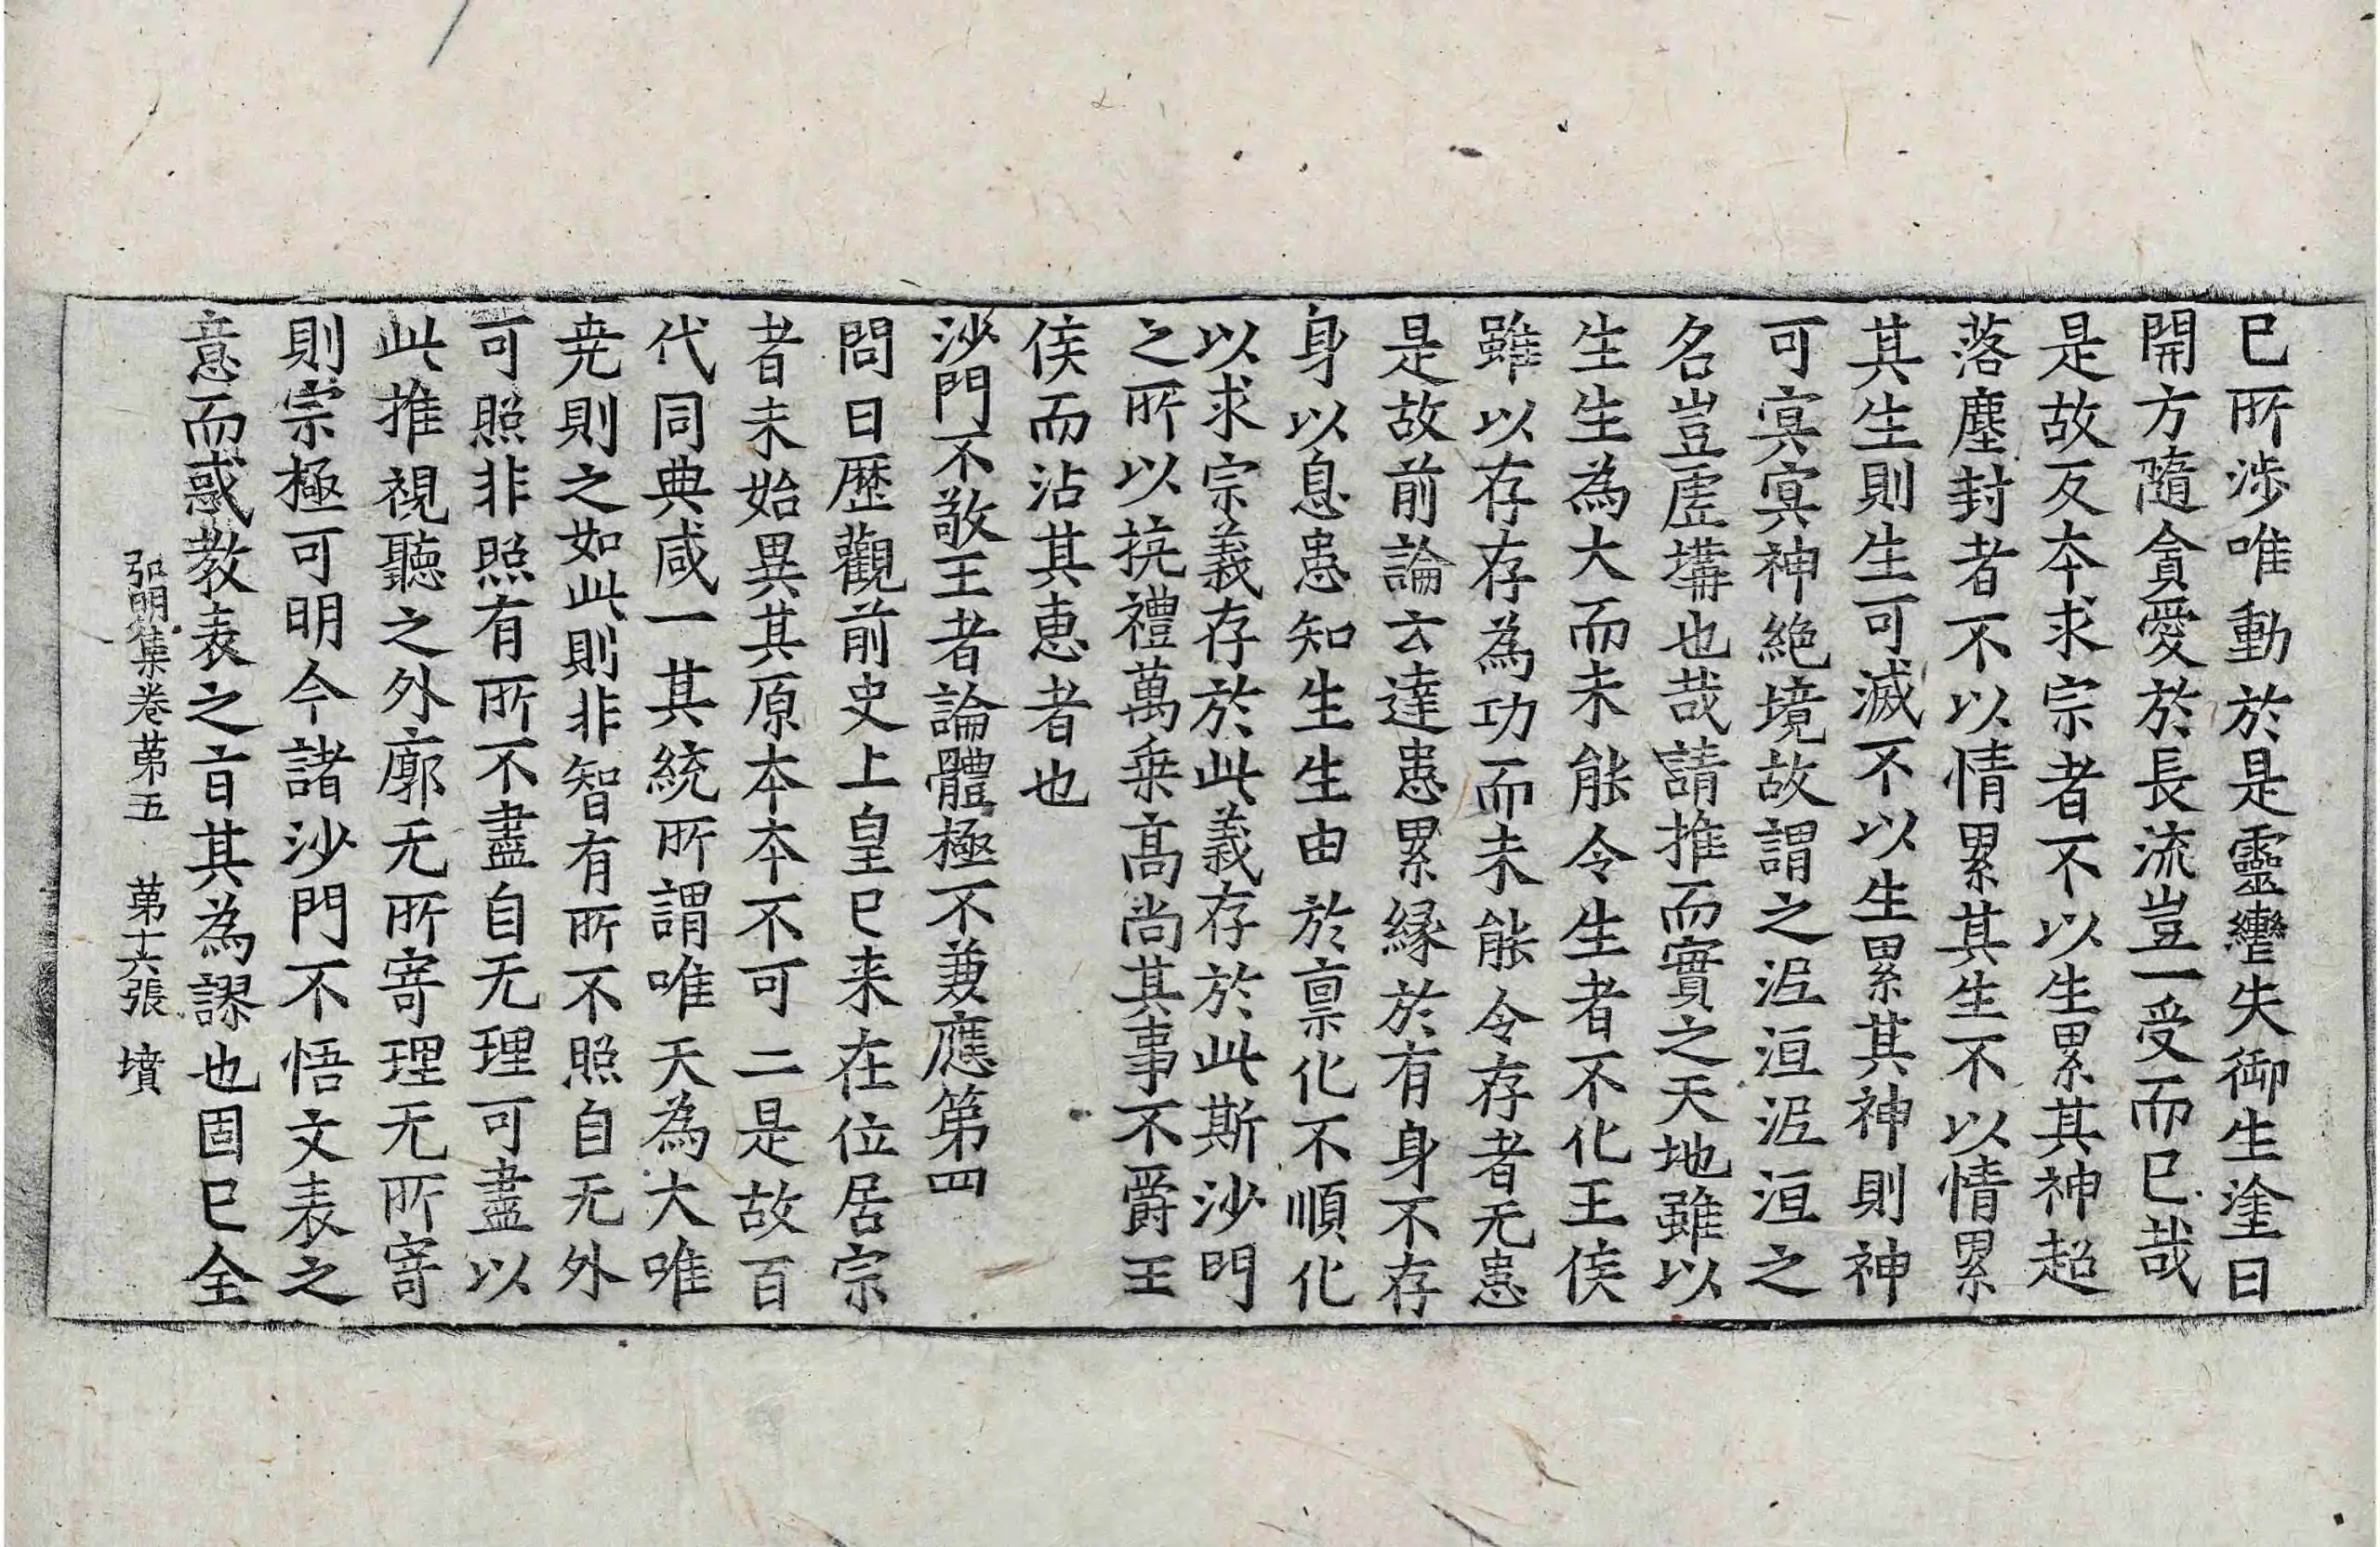 已所涉唯動於是靈轡失御生塗日
開方隨貪愛於長流豈一受而已哉
是故反本求宗者不以生累其神超
落塵封者不以情累其生不以情累
其生則生可滅不以生累其神則神
可㝠㝠神絶境故謂之泥洹泥洹之
名豈虗搆也哉請推而實之天地雖以
生生為大而未能令生者不化王侯
雖以存存為功而未能令存者无患
是故前論云達患累緣於有身不存
身以息患知生生由於禀化不順化
以求宗義存於此義存於此斯沙門
之所以抗禮萬乗高尚其事不爵王
侯而沾其惠者也
沙門不敬王者論體極不兼應第四
問曰歷觀前史上皇已来在位居宗
者未始異其原本本不可二是故百
代同典咸一其統所謂唯天為大唯
尭則之如此則非智有所不照自无外
可照非照有所不盡自无理可盡以
此推視聽之外廓无所寄理无所寄
則宗極可明今諸沙門不悟文表之
意而惑教表之旨其為謬也固已全
弘明集卷第五 第十六張 墳